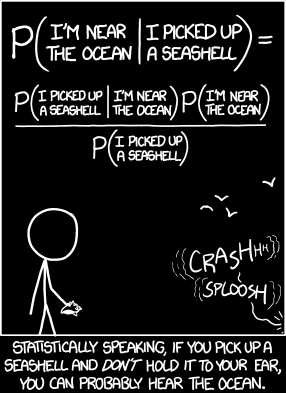 P(I'M NEAR THE OCEAN | I PICKED UP A SEASHELL) =
P(I PICKED UP A SEASHELL | I'M NEAR THE OCEAN) P(I'M NEAR THE OCEAN)
P(I PICKED UP A SEASHELL)
CRASHHH
SPLOOSH
STATISTICALLY SPEAKING, IF YOU PICK UP A
SEASHELL AND DON'T HOLD IT TO YOUR EAR,
YOU CAN PROBABLY HEAR THE OCEAN.